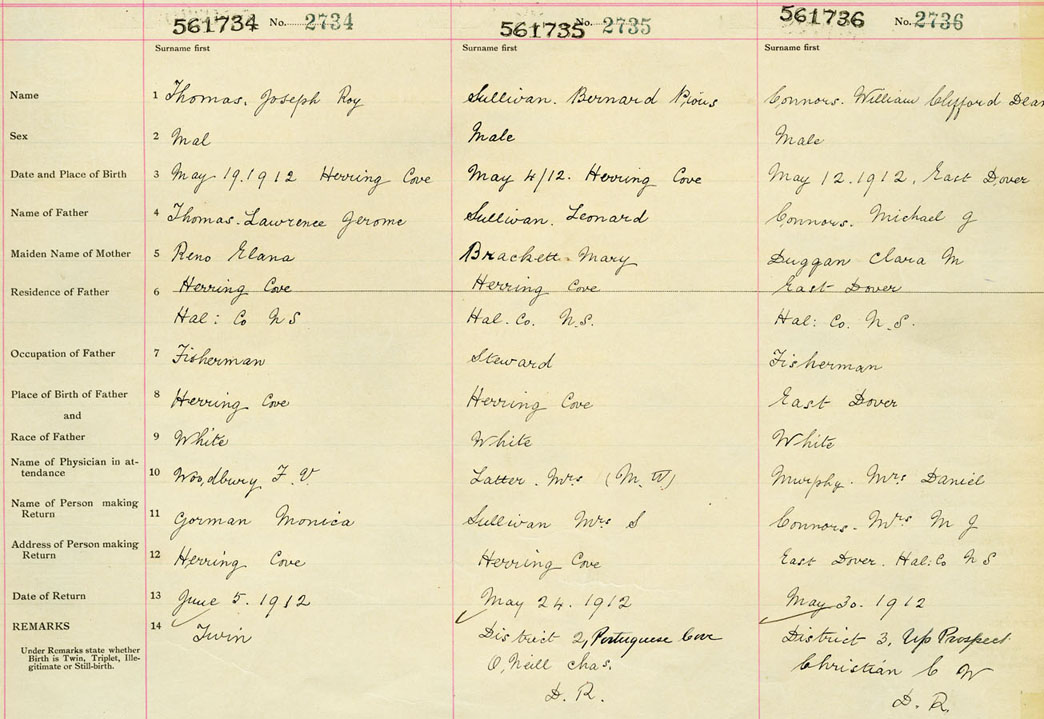 561734 No. 2734 561735 No. 2735 561736 No. 2736
Surname first Surname first Surname first
Name 1 Thomas. Joseph Roy Sullivan. Bernard Pious Connors. William Clifford Dean
Sex 2 Mal Male Male
Date and Place of Birth 3 May 19.1912 Herring Cove May 4/12. Herring Cove May 12.1912, East Dover
Name of Father 4 Thomas. Lawrence Jerome Sullivan. Leonard Connors. Michael J
Maiden Name of Mother 5 Reno Elana Brackett. Mary Duggan Clara M
Residence of Father 6 Herring Cove Herring Cove East Dover
Hal: Co N S Hal. Co. N.S. Hal: Co. N.S.
Occupation of Father 7 Fisherman Steward Fisherman
Place of Birth of Father 8 Herring Cove Herring Cove East Dover
and
Race of Father 9 White White White
Name of Physician in at-
tendance 10 Woodbury F. V. Latter. Mrs (M.W) Murphy. Mrs Daniel
Name of Person making
Return 11 Gorman Monica Sullivan Mrs S Connors. Mrs M J
Address of Person making
Return 12 Herring Cove Herring Cove East Dover. Hal:Co N S
Date of Return 13 June 5. 1912 May 24. 1912 May 30. 1912
REMARKS 14 Twin District 2, Portuguese Cove District 3, Up Prospect
Under Remarks state whether
Birth is Twin, Triplet, Ille-
gitimate or Still-birth.
O'Neill Chas. Christian C W
D. R. D. R.